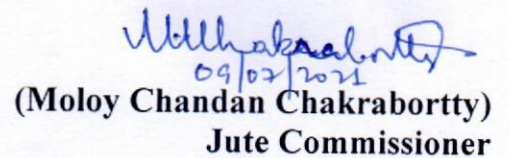 MChakrabortty
09/07/2021
(Moloy Chandan Chakrabortty)
Jute Commissioner